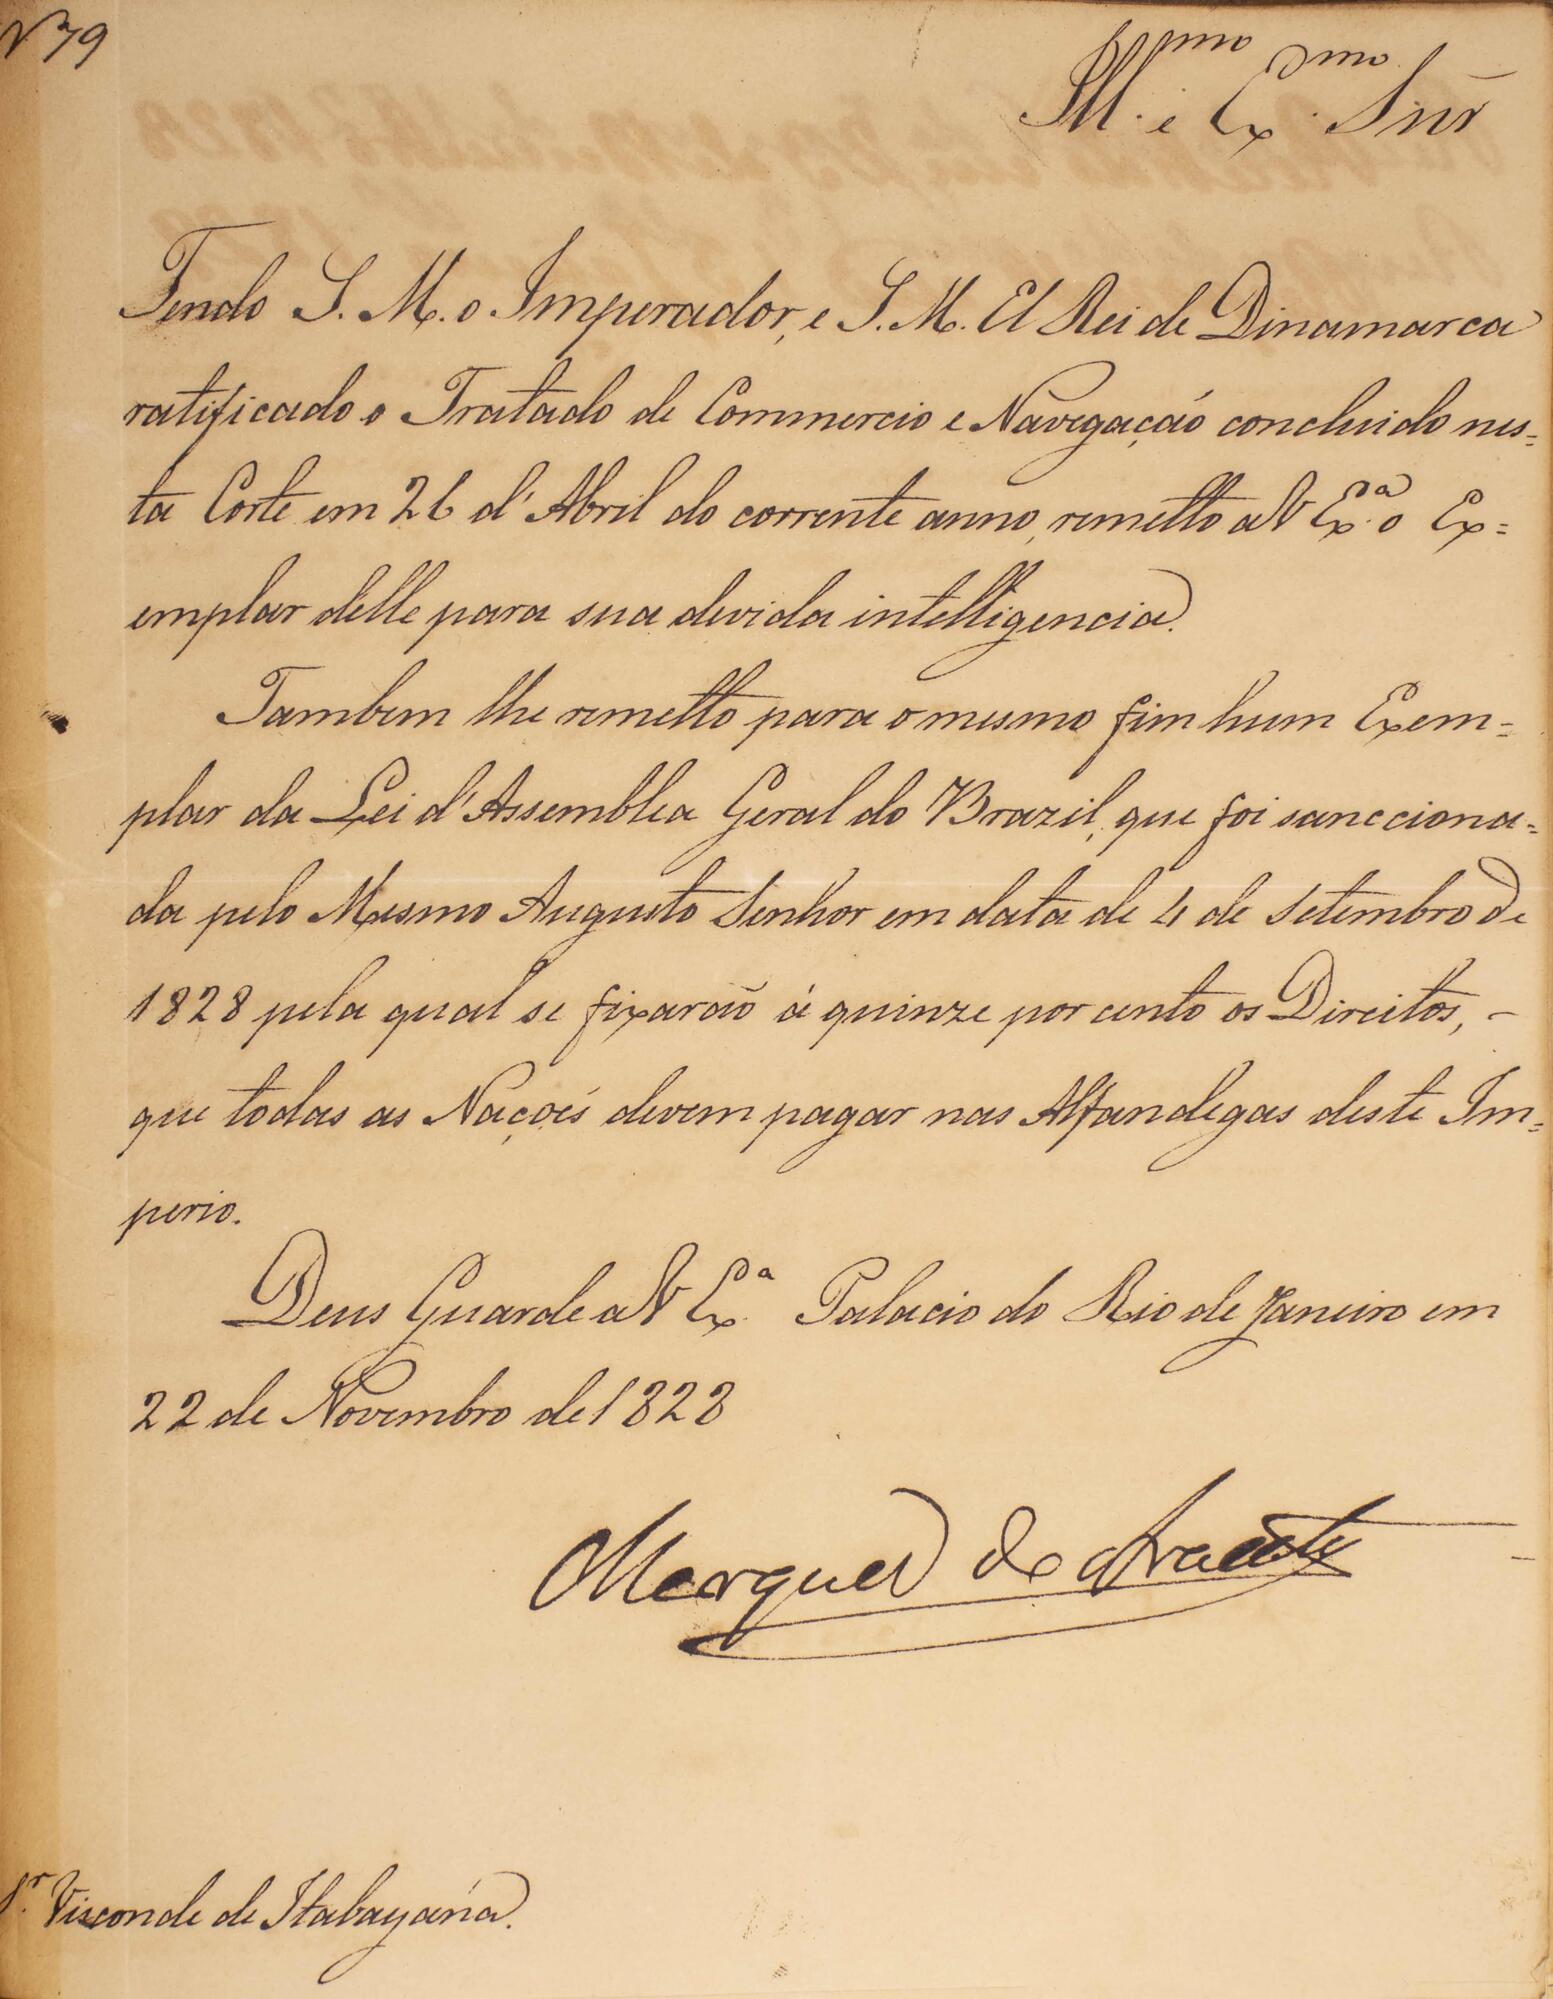 N 79
Ill.mo e Ex.mo Snr̃
Tendo S. M. o Imperador, e S. M. El Rei de Dinamarca
ratificado o Tratado de Commercio e Navegação concluido nes=
ta Corte em 26 d'Abril do corrente anno, remetto a V Ex.ª o Ex=
emplar delle para sua devida intelligencia.
Tambem lhe remetto para o mesmo fim hum Exem=
plar da Lei d'Assemblea Geral do Brazil, que foi sancciona=
da pelo Mesmo Augusto Senhor em data de 4 de Setembro de
1828 pela qual se fixarão á quinze por cento os Direitos, -
que todas as Naçoẽs devem pagar nas Alfandegas deste Im=
perio.
Deus Guarde a V Ex.ª Palacio do Rio de Janeiro em
22 de Novembro de 1828
Marquez de Aracaty
S.r Visconde de Itabayána.